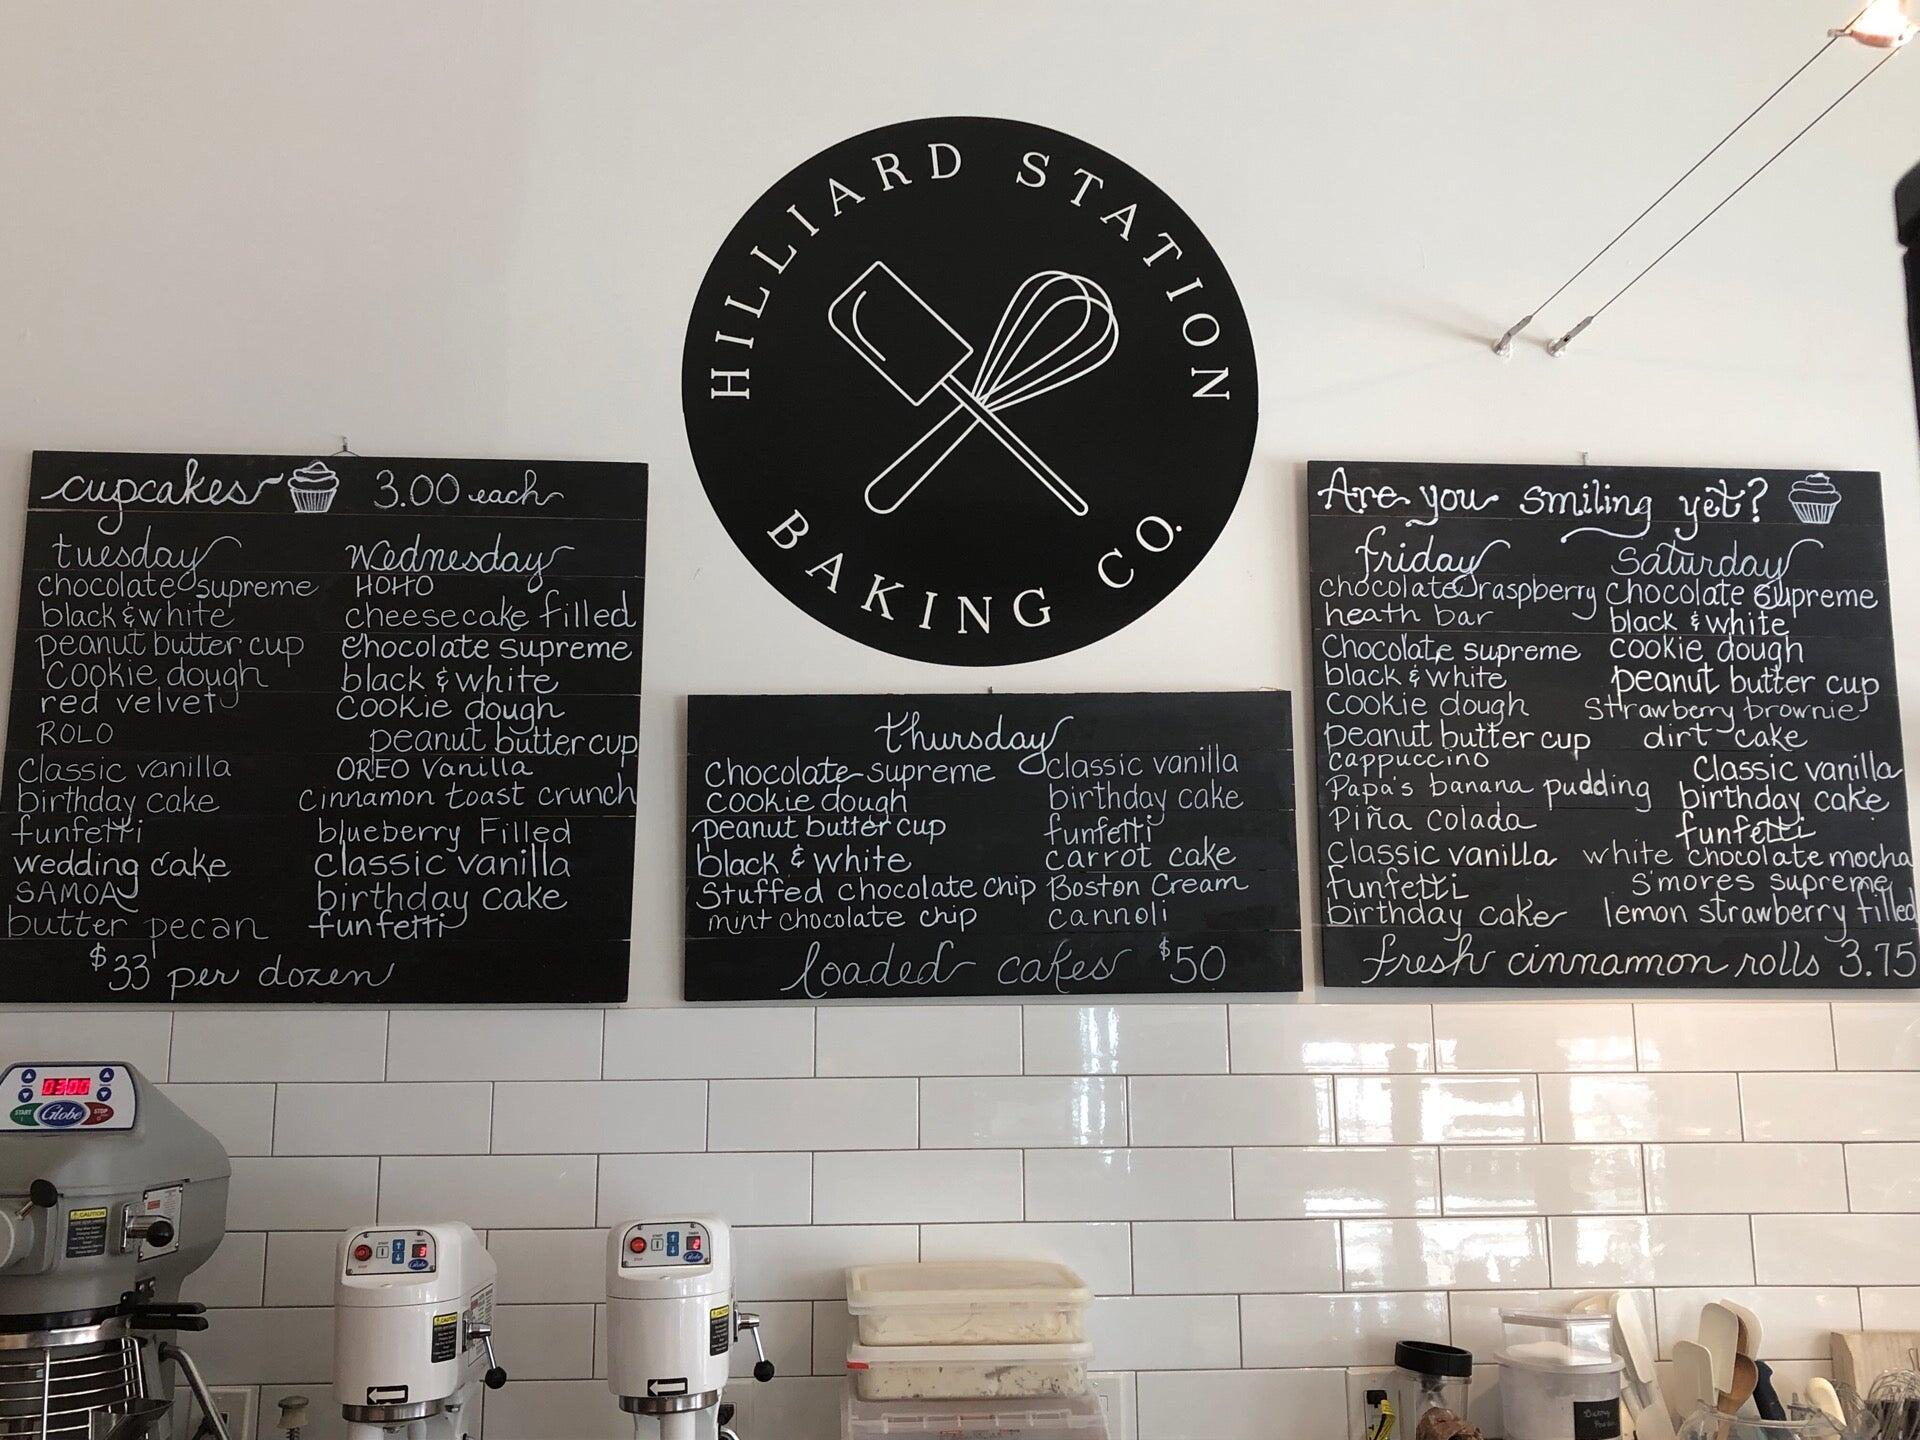 HILLIARD STATION
BAKING CO.
cupcakes 3.00 each
tuesday
chocolate supreme
black & white
peanut butter cup
cookie dough
red velvet
ROLO
classic vanilla
birthday cake
funfetti
wedding cake
SAMOA
butter pecan
Wednesday
HOHO
cheesecake filled
chocolate supreme
black & white
cookie dough
peanut butter cup
OREO vanilla
cinnamon toast crunch
blueberry Filled
classic vanilla
birthday cake
funfetti
$33 per dozen
thursday
chocolate supreme
cookie dough
peanut butter cup
black & white
Stuffed chocolate chip
mint chocolate chip
classic vanilla
birthday cake
funfetti
carrot cake
Boston Cream
cannoli
loaded cakes $50
Are you smiling yet?
friday
chocolate raspberry
heath bar
Chocolate supreme
black & white
cookie dough
peanut butter cup
cappuccino
Papa's banana pudding
Piña colada
classic vanilla
funfetti
birthday cake
Saturday
chocolate supreme
black & white
cookie dough
peanut butter cup
Strawberry brownie
dirt cake
Classic vanilla
birthday cake
funfetti
white chocolate mocha
s'mores supreme
lemon strawberry filled
fresh cinnamon rolls 3.75
03:00
START Globe STOP
CAUTION
3
Globe
2
Globe